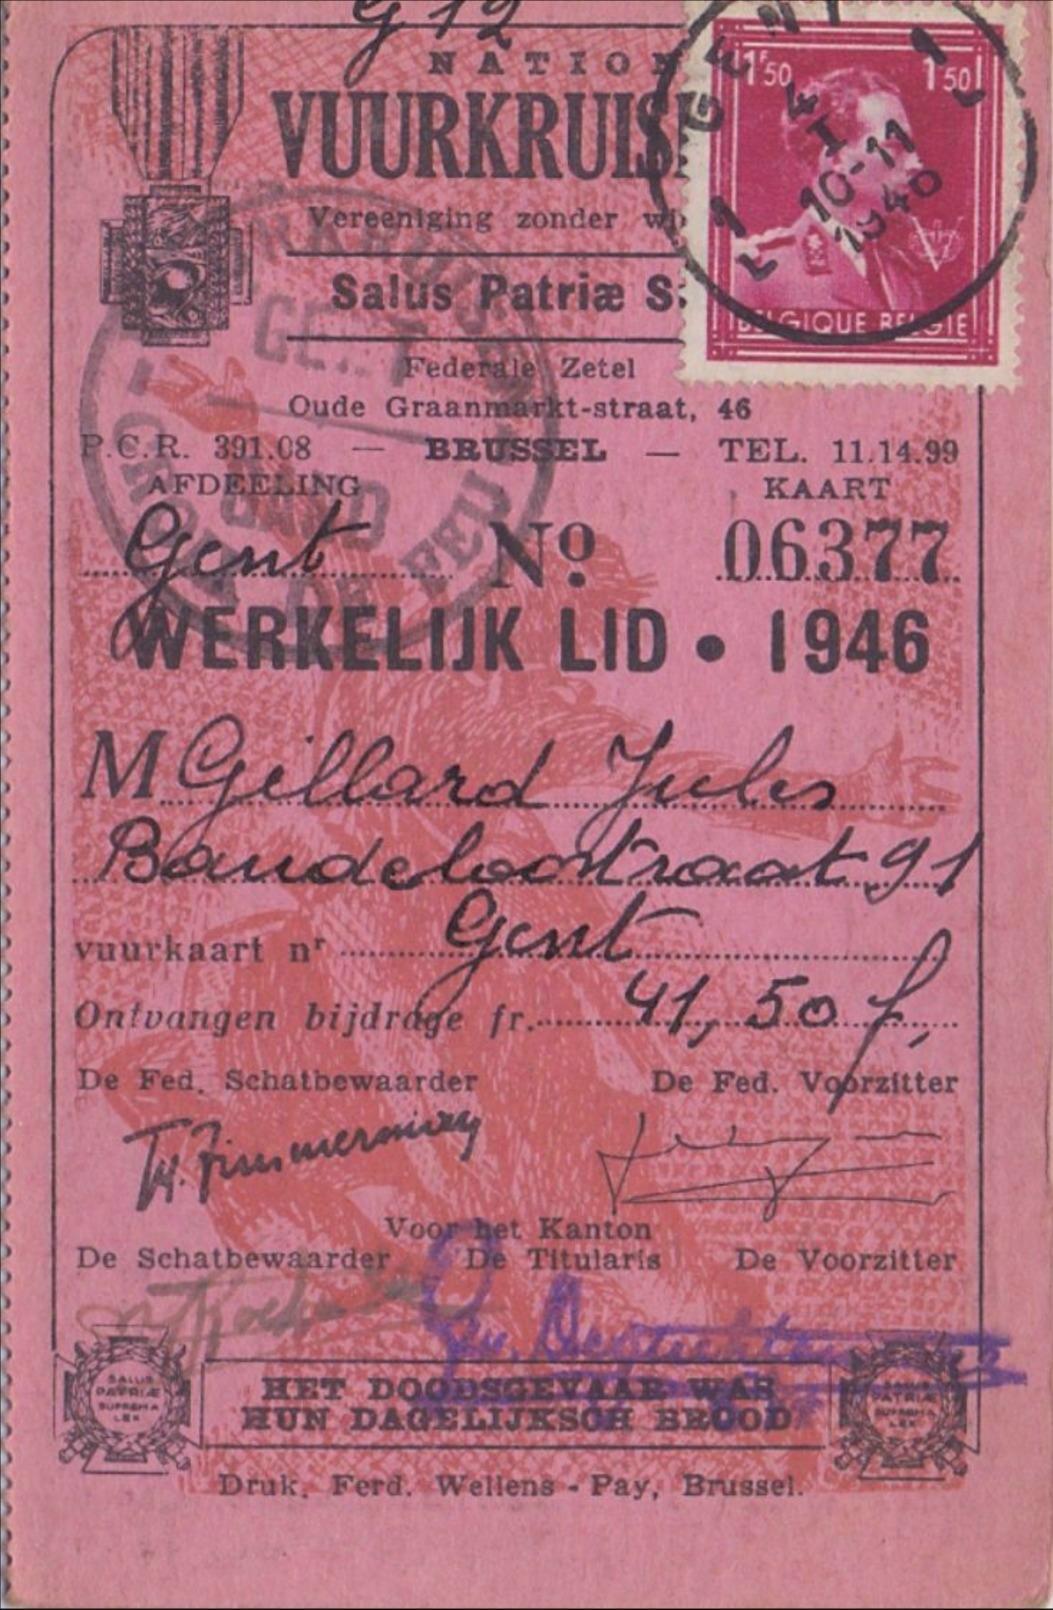 G 12
NATION
VUURKRUIS
Vereeniging zonder wi
Salus Patriæ S
Federale Zetel
Oude Graanmarkt-straat, 46
P.C.R. 391.08 — BRUSSEL — TEL. 11.14.99
AFDEELING KAART
Gent Nº 06377
WERKELIJK LID • 1946
M Gillard Jules
Baudeloostraat 91
Gent
vuurkaart nr
Ontvangen bijdrage fr. 41,50 f.
De Fed. Schatbewaarder De Fed. Voorzitter
Voor het Kanton
De Schatbewaarder De Titularis De Voorzitter
SALUS
PATRIÆ
SUPREMA
LEX
HET DOODSGEVAAR WAS
HUN DAGELIJKSCH BROOD
PATRIÆ
SUPREMA
LEX
Druk. Ferd. Wellens - Pay, Brussel.
1F50 1F50
BELGIQUE BELGIE
GENT
1 1
4
I
10-11
1940
L L
GENT
GAND
CROIX DE FEU